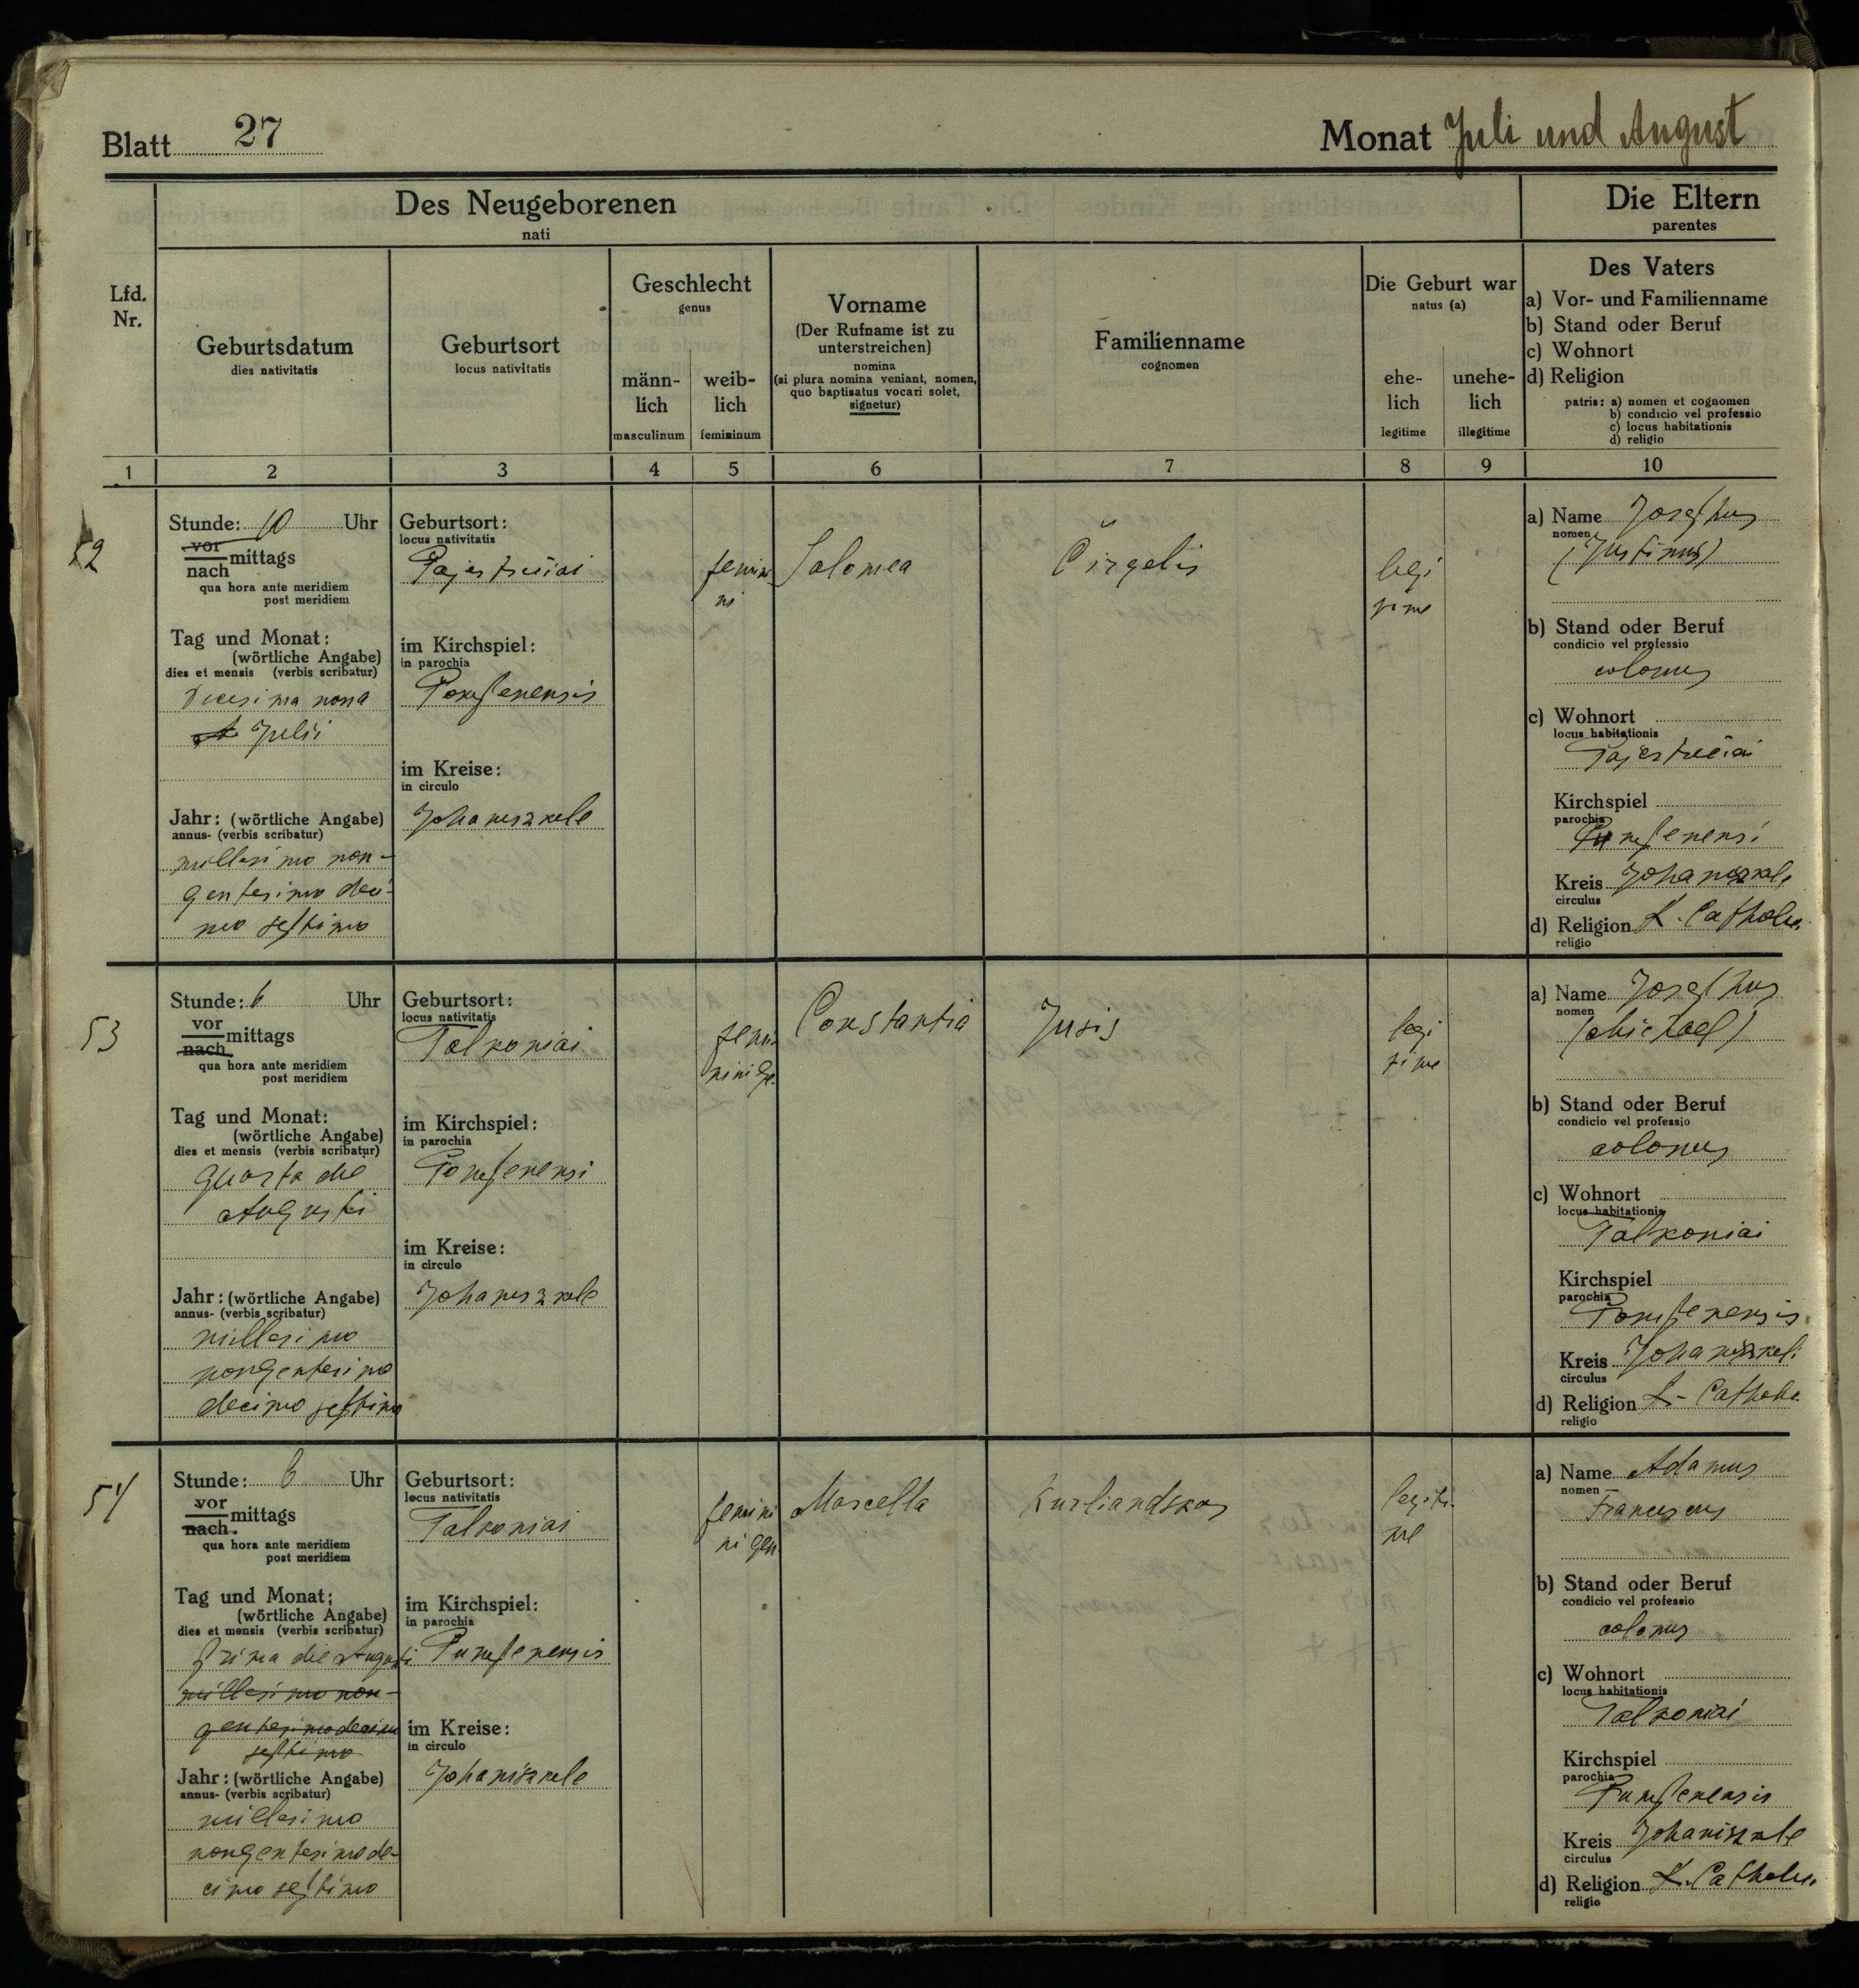 Blatt 27
Monat Juli und August
Des Neugeborenen
nati
Die Eltern
parentes
Lfd.
Nr.
Geburtsdatum
dies nativitatis
Geburtsort
locus nativitatis
Geschlecht
genus
männ-
lich
masculinum
weib-
lich
femininum
Vorname
(Der Rufname ist zu
unterstreichen)
nomina
(si plura nomina veniant, nomen,
quo baptisatus vocari solet,
signetur)
Familienname
cognomen
Die Geburt war
natus (a)
ehe-
lich
legitime
unehe-
lich
illegitime
Des Vaters
a) Vor- und Familienname
b) Stand oder Beruf
c) Wohnort
d) Religion
patris: a) nomen et cognomen
b) condicio vel professio
c) locus habitationis
d) religio
1 2 3 4 5 6 7 8 9 10
52
Stunde: 10 Uhr
vor
nach mittags
qua hora ante meridiem
post meridiem
Tag und Monat:
(wörtliche Angabe)
dies et mensis (verbis scribatur)
Decesima nona
Julii
Jahr: (wörtliche Angabe)
annus- (verbis scribatur)
millesimo non-
gentesimo deci-
mo septimo
Geburtsort:
locus nativitatis
Pajestriečiai
im Kirchspiel:
in parochia
im Kreise:
in circulo
Johaniszkele
femini
ni
Salomea
Čirgelis
legi
time
a) Name Josephus
nomen
(Justinus)
b) Stand oder Beruf
condicio vel professio
colonus
c) Wohnort
locus habitationis
Kirchspiel
parochia
Kreis Johaniszkele
circulus
d) Religion R. Catholic.
religio
53
Stunde: 6 Uhr
vor
nach mittags
qua hora ante meridiem
post meridiem
Tag und Monat:
(wörtliche Angabe)
dies et mensis (verbis scribatur)
quarta die
Augusti
Jahr: (wörtliche Angabe)
annus- (verbis scribatur)
millesimo
nongentesimo
decimo septimo
Geburtsort:
locus nativitatis
Talkoniai
im Kirchspiel:
in parochia
im Kreise:
in circulo
Johaniszkele
femi-
nini ge.
Constantia
Jusis
legi
time
a) Name Josephus
nomen
(Michael)
b) Stand oder Beruf
condicio vel professio
colonus
c) Wohnort
locus habitationis
Talkoniai
Kirchspiel
parochia
Kreis Johaniszkeli
circulus
d) Religion R. Catholic.
religio
54
Stunde: 6 Uhr
vor
nach. mittags
qua hora ante meridiem
post meridiem
Tag und Monat:
(wörtliche Angabe)
dies et mensis (verbis scribatur)
prima die Augusti
millesimo non-
gentesimo decimo
septimo
Jahr: (wörtliche Angabe)
annus- (verbis scribatur)
millesimo
nongentesimo de-
cimo septimo
Geburtsort:
locus nativitatis
Talkoniai
im Kirchspiel:
in parochia
Pumpenensis
im Kreise:
in circulo
Johaniszkele
femini
ni gen.
Marcella
Kurliandskas
legiti-
me
a) Name Adamus
nomen
Franciscus
b) Stand oder Beruf
condicio vel professio
colonus
c) Wohnort
locus habitationis
Talkoniai
Kirchspiel
parochia
Pumpenensis
Kreis Johaniszkele
circulus
d) Religion R. Catholic.
religio